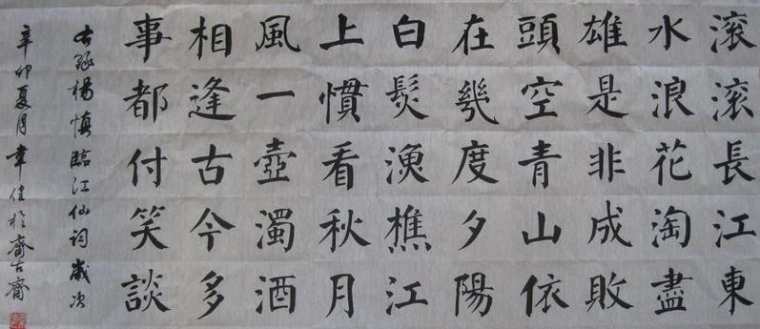 滚滚長江東
水浪花淘盡
雄是非成敗
頭空青山依
在幾度夕陽
白髮漁樵江
上慣看秋月
風一壺濁酒
相逢古今多
事都付笑談
右錄楊慎臨江仙詞歲次
辛卯夏月韋佳於